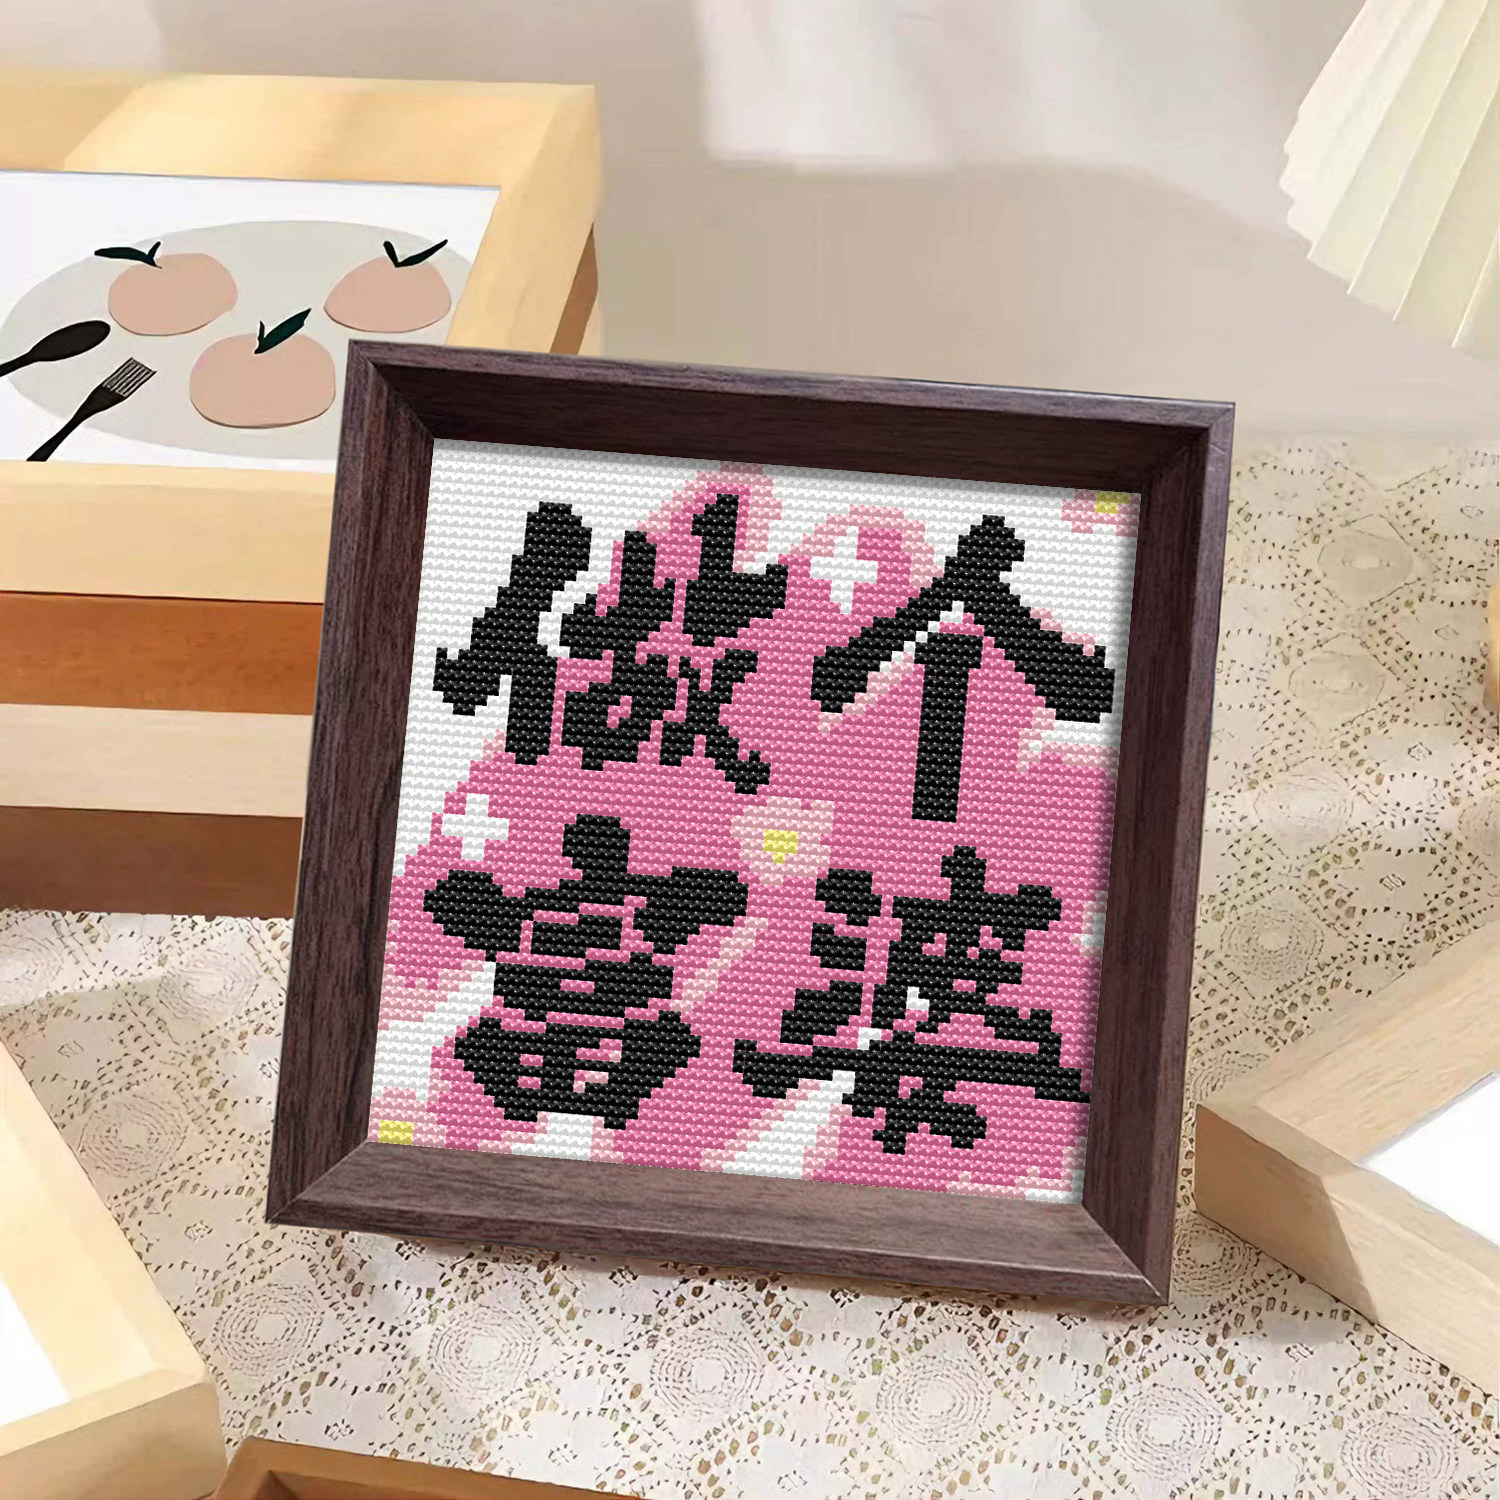 做个
富婆